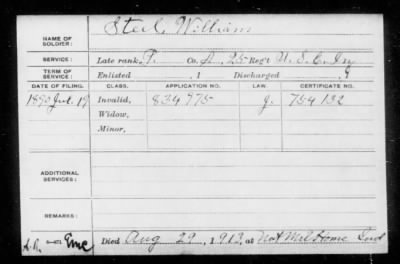 Steel, William
NAME OF SOLDIER:
SERVICE: Late rank, P. Co. A, 25 Reg't U. S. C. Inf
TERM OF SERVICE: Enlisted , 1 Discharged , 1
DATE OF FILING. CLASS. APPLICATION NO. LAW. CERTIFICATE NO.
1890 Jul. 19 Invalid, 834975 J. 754132
Widow,
Minor,
ADDITIONAL SERVICES:
REMARKS:
Died Aug 29, 1912, at Nat Mil Home